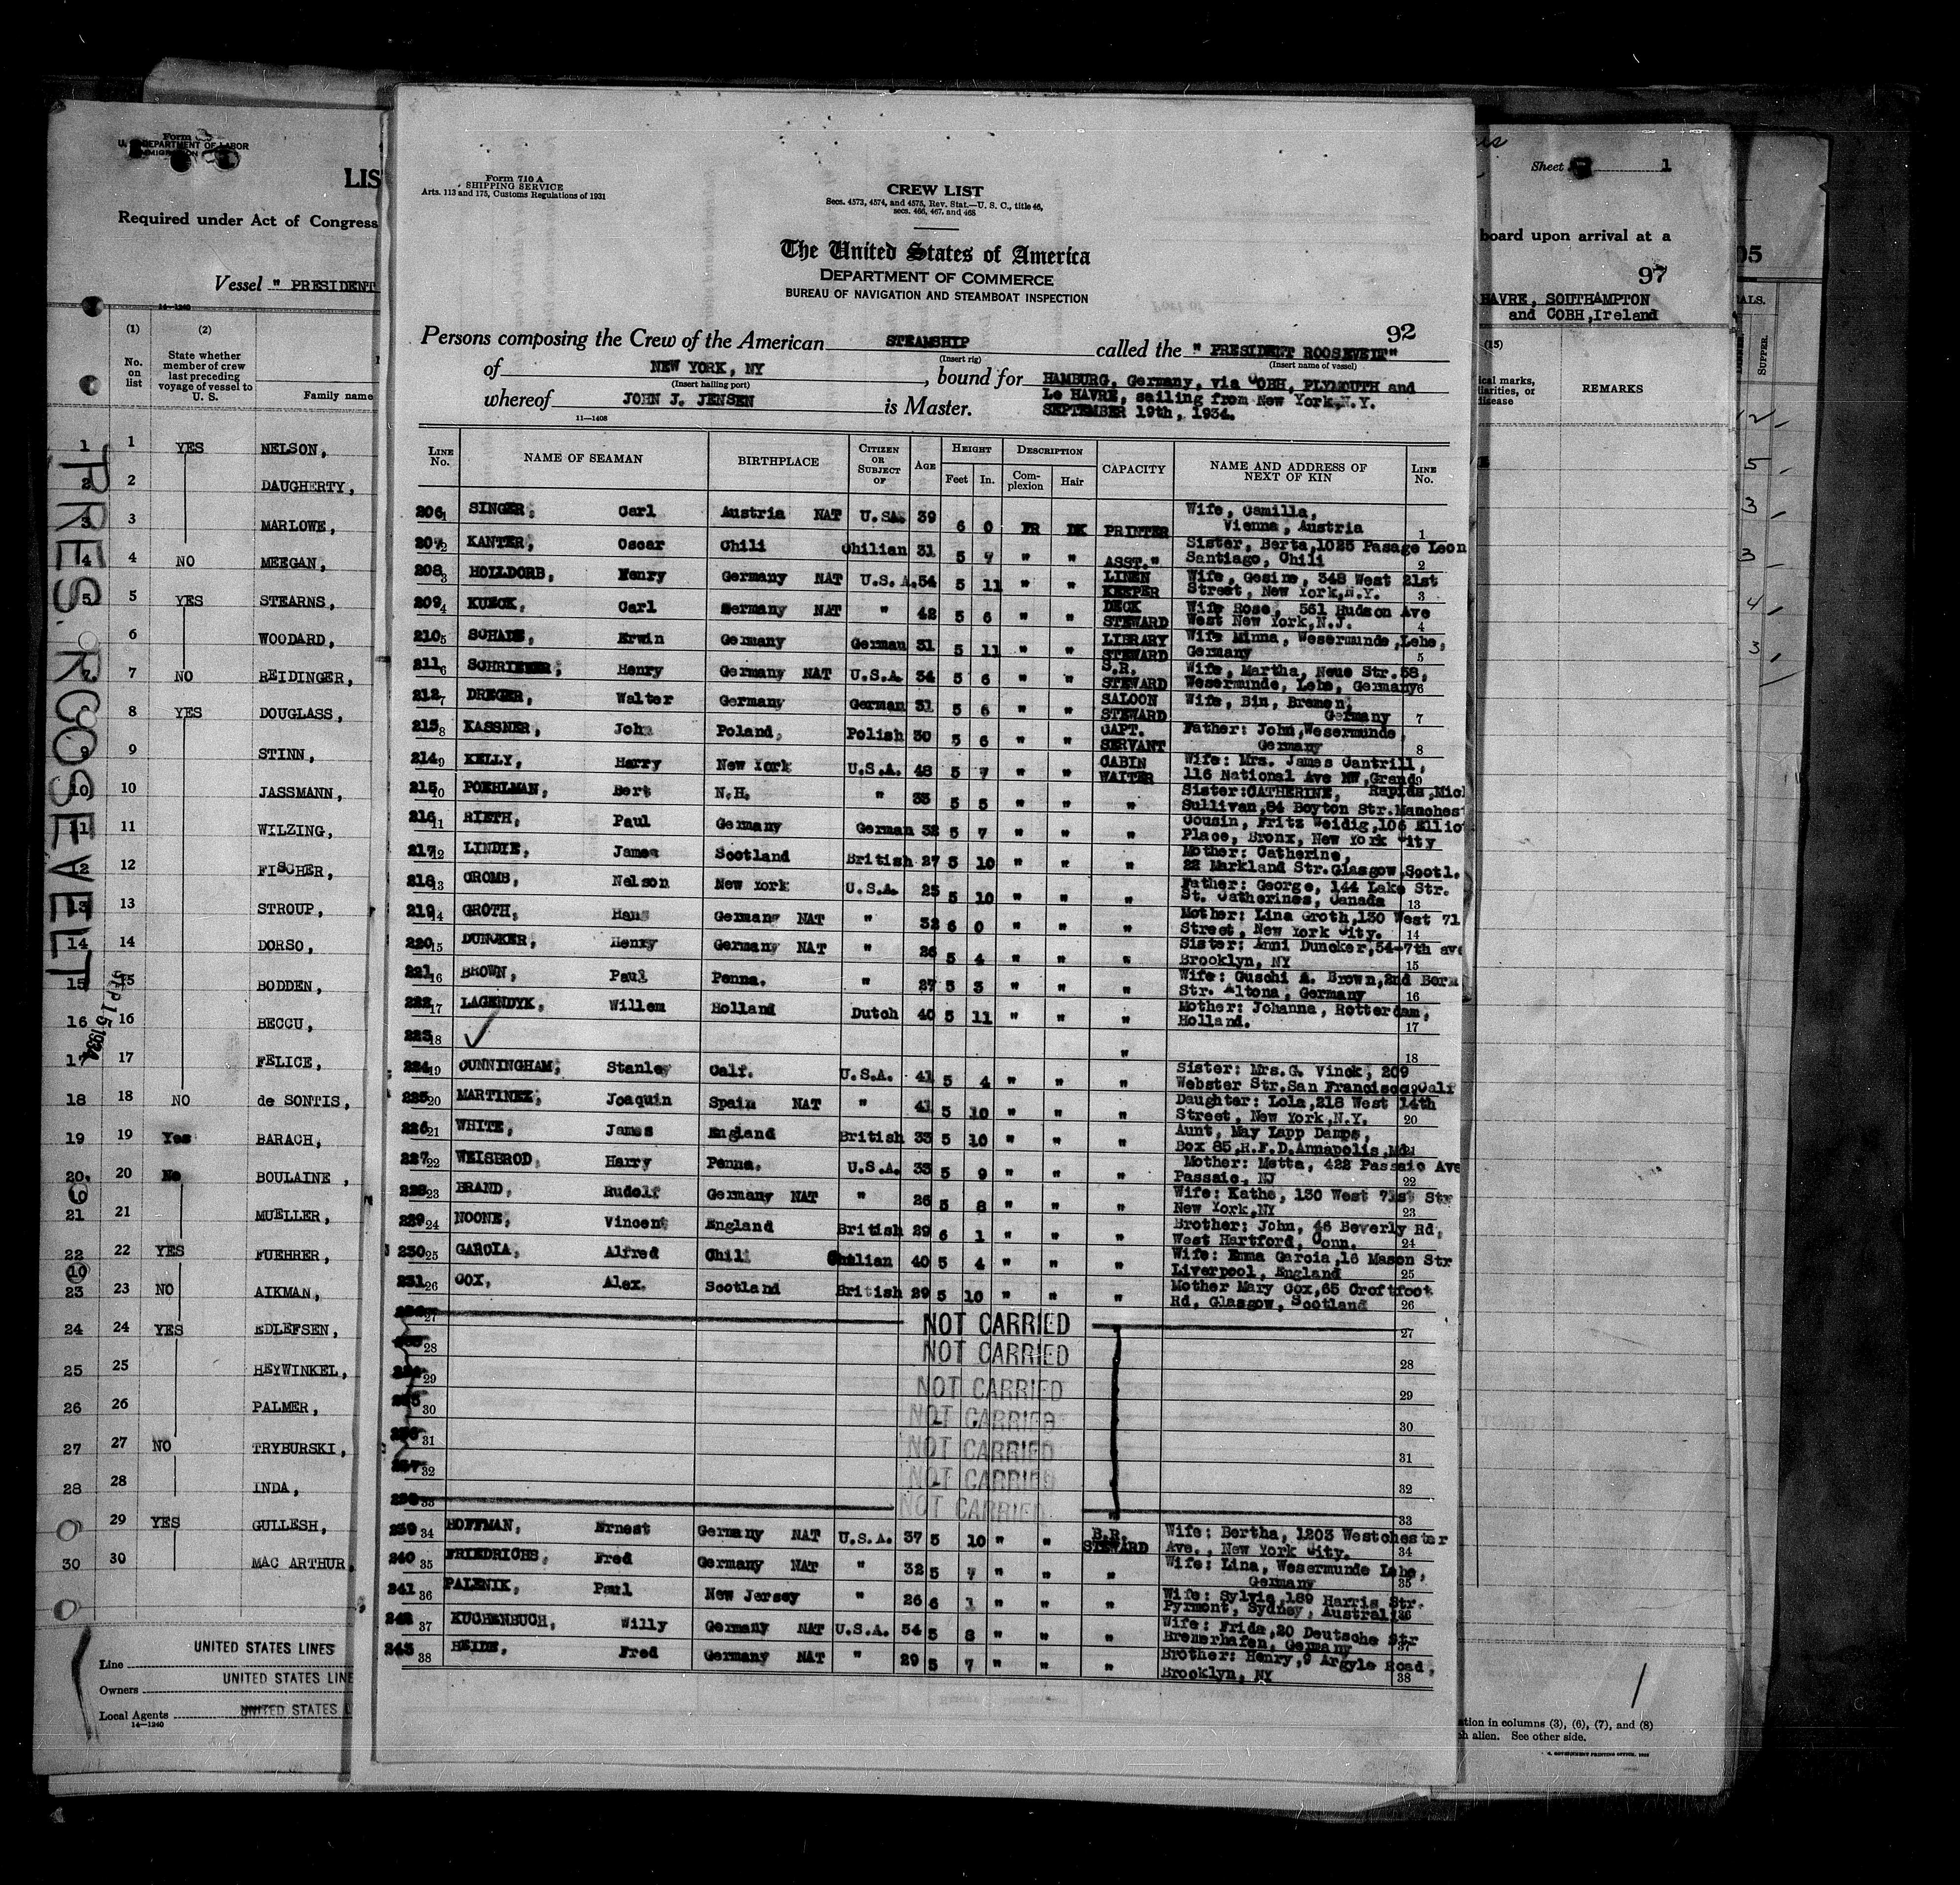 Form
U. S. DEPARTMENT OF LABOR
LIS
Required under Act of Congress
Vessel " PRESIDENT
14—1240
(1) (2)
No. on list
State whether member of crew last preceding voyage of vessel to U. S.
Family name
1 1 YES NELSON,
2 2 DAUGHERTY,
3 3 MARLOWE,
4 4 NO MEEGAN,
5 5 YES STEARNS,
6 WOODARD,
7 7 NO REIDINGER,
8 YES DOUGLASS,
9 9 STINN,
10 10 JASSMANN,
11 11 WILZING,
12 12 FISCHER,
13 13 STROUP,
14 14 DORSO,
15 15 BODDEN,
16 16 BECCU,
17 17 FELICE,
18 18 NO de SONTIS,
19 19 Yes BARACH,
20 20 No BOULAINE,
21 21 MUELLER,
22 22 YES FUEHRER,
23 23 NO AIKMAN,
24 24 YES EDLEFSEN,
25 25 HEYWINKEL,
26 26 PALMER,
27 27 NO TRYBURSKI,
28 28 INDA,
29 YES GULLESH,
30 30 MAC ARTHUR,
PRES. ROOSEVELT
SEP 15 1934
Line UNITED STATES LINES
Owners UNITED STATES LINE
Local Agents UNITED STATES L
14—1240
Form 710 A
SHIPPING SERVICE
Arts. 113 and 175, Customs Regulations of 1931
CREW LIST
Secs. 4573, 4574, and 4575, Rev. Stat.—U. S. C., title 46,
secs. 466, 467, and 468
The United States of America
DEPARTMENT OF COMMERCE
BUREAU OF NAVIGATION AND STEAMBOAT INSPECTION
92
Persons composing the Crew of the American STEAMSHIP called the " PRESIDENT ROOSEVELT"
(Insert rig) (Insert name of vessel)
of NEW YORK, NY, bound for HAMBURG, Germany, via COBH, PLYMOUTH and
(Insert hailing port)
whereof JOHN J. JENSEN is Master. Le HAVRE, sailing from New York,N.Y.
11—1408
SEPTEMBER 19th, 1934.
LINE No. NAME OF SEAMAN BIRTHPLACE CITIZEN OR SUBJECT OF AGE HEIGHT Feet In. DESCRIPTION Complexion Hair CAPACITY NAME AND ADDRESS OF NEXT OF KIN LINE No.
206 1 SINGER, Carl Austria NAT U.SA. 39 6 0 FR DK PRINTER Wife, Camilla, Vienna, Austria 1
207 2 KANTER, Oscar Chili Chilian 31 5 7 " " ASST." Sister, Berta,1025 Pasage Leon Santiago, Chili 2
208 3 HOLLDORB, Henry Germany NAT U.S.A. 54 5 11 " " LINEN KEEPER Wife, Gesine, 348 West 21st Street, New York,N.Y. 3
209 4 KUECK, Carl Germany NAT " 42 5 6 " " DECK STEWARD Wife Rose, 561 Hudson Ave West New York,N.J. 4
210 5 SCHADE, Erwin Germany German 31 5 11 " " LIBRARY STEWARD Wife Minna, Wesermunde,Lehe, Germany 5
211 6 Henry Germany NAT U.S.A. 34 5 6 " " S.R. STEWARD Wife, Martha, Neue Str.58, Wesermunde, Lehe, Germany 6
212 7 DREGER, Walter Germany German 31 5 6 " " SALOON STEWARD Wife, Bin, Bremen, Germany 7
213 8 KASSNER, John Poland, Polish 30 5 6 " " CAPT. SERVANT Father: John,Wesermunde, Germany 8
214 9 KELLY, Harry New York U.S.A. 48 5 7 " " CABIN WAITER Wife: Mrs. James Cantrill, 116 National Ave NW,Grand 9
215 10 POEHLMAN, Bert N.H. " 33 5 5 " " " Sister:CATHERINE, Rapids,Mich Sullivan,84 Boyton Str.Manchest
216 11 RIETH, Paul Germany German 32 5 7 " " " Cousin, Fritz Weidig,106 Ellio Place, Bronx, New York City
217 12 LINDIE, James Scotland British 27 5 10 " " " Mother: Catherine, 22 Markland Str.Glasgow,Scotl.
218 13 CROMB, Nelson New York U.S.A. 25 5 10 " " " Father: George, 144 Lake Str. St. Catherines, Canada 13
219 14 GROTH, Hans Germany NAT " 32 6 0 " " " Mother: Lina Groth,130 West 71 Street, New York City. 14
220 15 DUNCKER, Henry Germany NAT " 26 5 4 " " " Sister: Anni Duncker,54-7th ave Brooklyn, NY 15
221 16 BROWN, Paul Penna. " 27 5 3 " " " Wife: Guschi A. Brown,2nd Born Str. Altona, Germany 16
222 17 LAGENDYK, Willem Holland Dutch 40 5 11 " " " Mother: Johanna, Rotterdam, Holland. 17
223 18 ✓ " 18
224 19 CUNNINGHAM, Stanley Calf. U.S.A. 41 5 4 " " " Sister: Mrs.G. Vinck, 209 Webster Str.San Francisco,Calf
225 20 MARTINEZ, Joaquin Spain NAT " 41 5 10 " " " Daughter: Lola,218 West 14th Street, New York,N.Y. 20
226 21 WHITE, James England British 33 5 10 " " " Aunt, May Lapp Damps, Box 85,R.F.D.Annapolis,Md. 21
227 22 WEISBROD, Harry Penna. U.S.A. 33 5 9 " " " Mother: Metta, 422 Passaic Ave Passaic, NJ 22
228 23 BRAND, Rudolf Germany NAT " 26 5 8 " " " Wife: Kathe, 130 West 71st Str New York,NY 23
229 24 NOONE, Vincent England British 29 6 1 " " " Brother: John, 46 Beverly Rd, West Hartford, Conn. 24
230 25 GARCIA, Alfred Chili Chilian 40 5 4 " " " Wife: Emma Garcia,16 Mason Str Liverpool, England 25
231 26 COX, Alex. Scotland British 29 5 10 " " " Mother Mary Cox,65 Croftfoot Rd, Glasgow, Scotland 26
27 NOT CARRIED 27
28 NOT CARRIED 28
29 NOT CARRIED 29
30 NOT CARRIED 30
31 NOT CARRIED 31
32 NOT CARRIED 32
33 NOT CARRIED 33
239 34 HOFFMAN, Ernest Germany NAT U.S.A. 37 5 10 " " B.R. STEWARD Wife: Bertha, 1203 Westchester Ave., New York City. 34
240 35 FRIEDRICHS, Fred Germany NAT " 32 5 7 " " " Wife: Lina, Wesermunde Lehe, Germany 35
241 36 PALENIK, Paul New Jersey " 26 6 1 " " " Wife: Sylvia,189 Harris Str. Pyrmont, Sydney, Australia 36
242 37 KUCHENBUCH, Willy Germany NAT U.S.A. 54 5 8 " " " Wife: Frida,20 Deutsche Str Bremerhafen, Germany 37
243 38 HEIDE, Fred Germany NAT " 29 5 7 " " " Brother: Henry,9 Argyle Road, Brooklyn, NY 38
Sheet 1
board upon arrival at a
97
HAVRE, SOUTHAMPTON
and COBH,Ireland
(15)
ical marks,
liarities, or
disease
REMARKS
ation in columns (3), (6), (7), and (8)
ch alien. See other side.
05
ALS.
SUPPER.
12
5
3
3
4
3